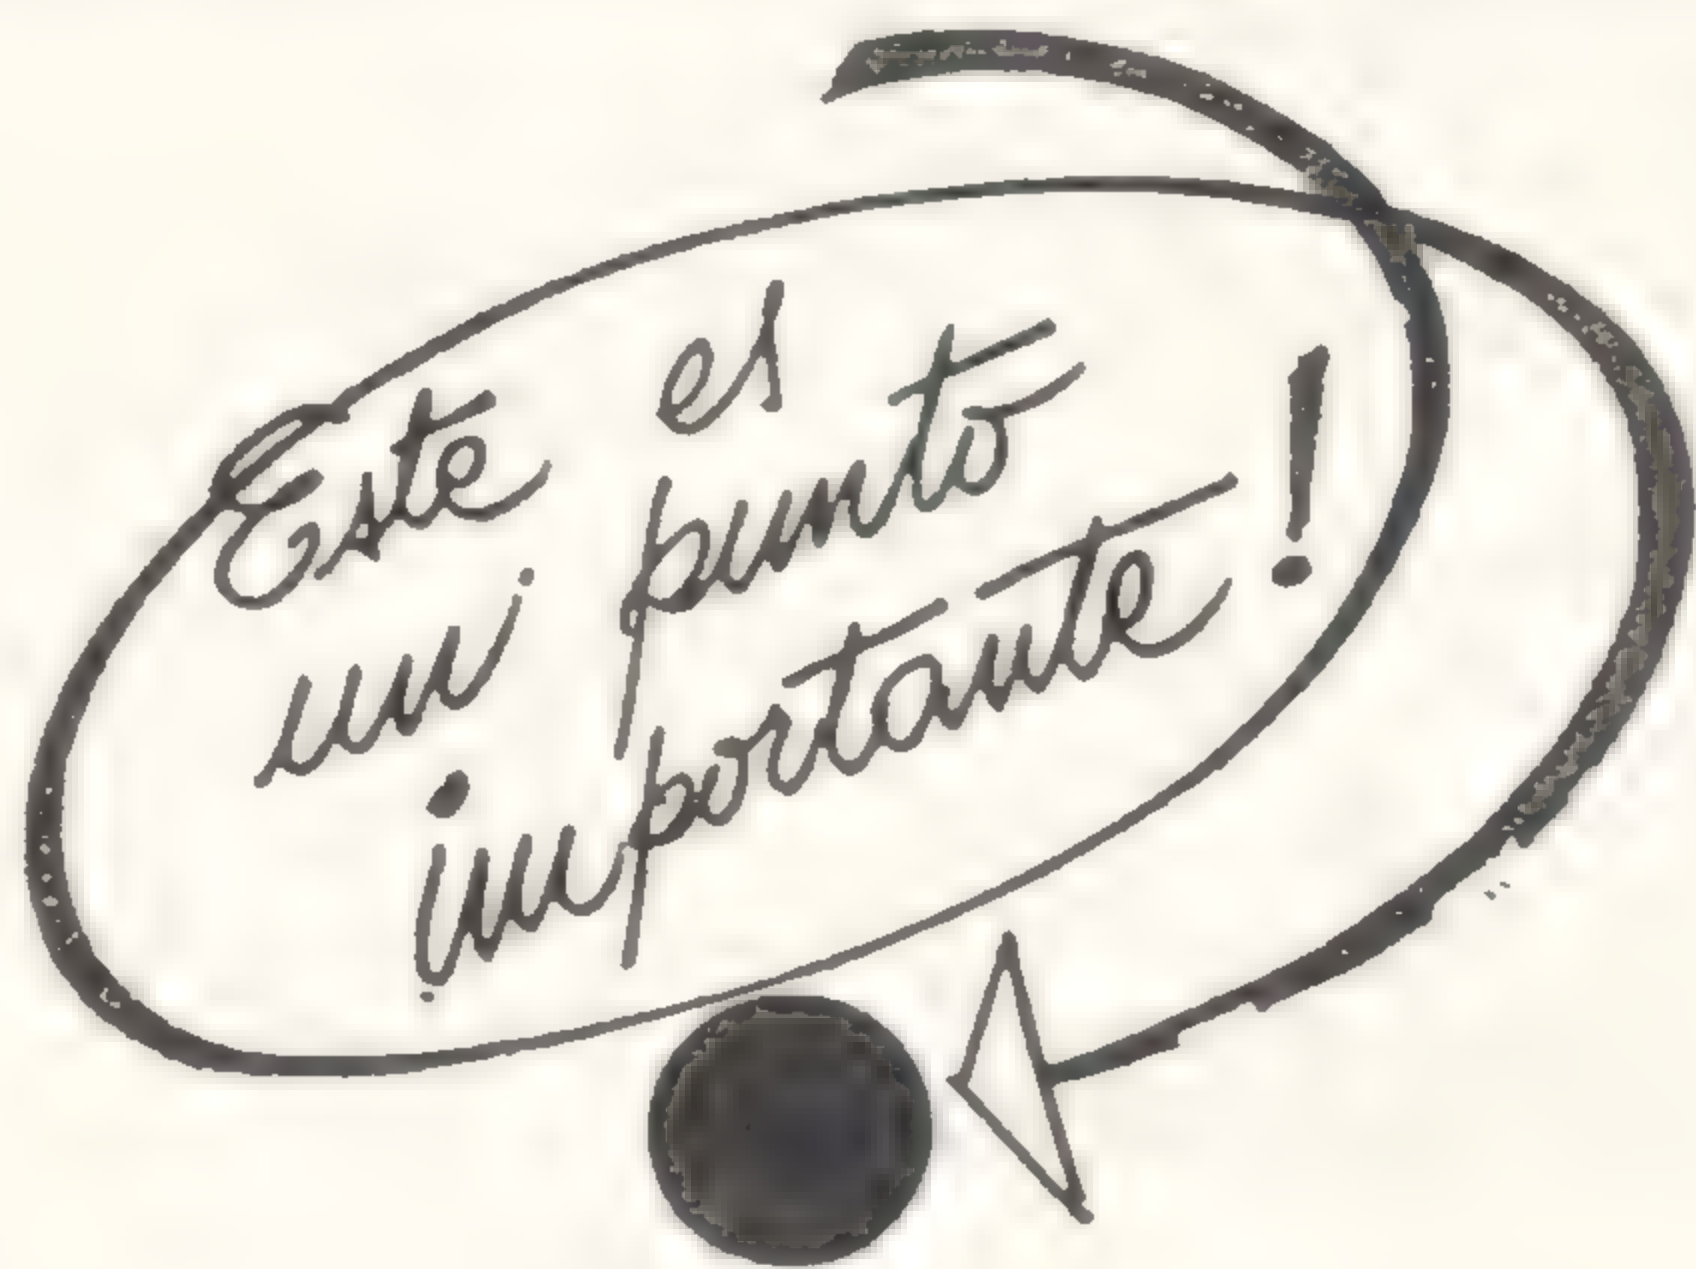 Este es
un punto
importante!